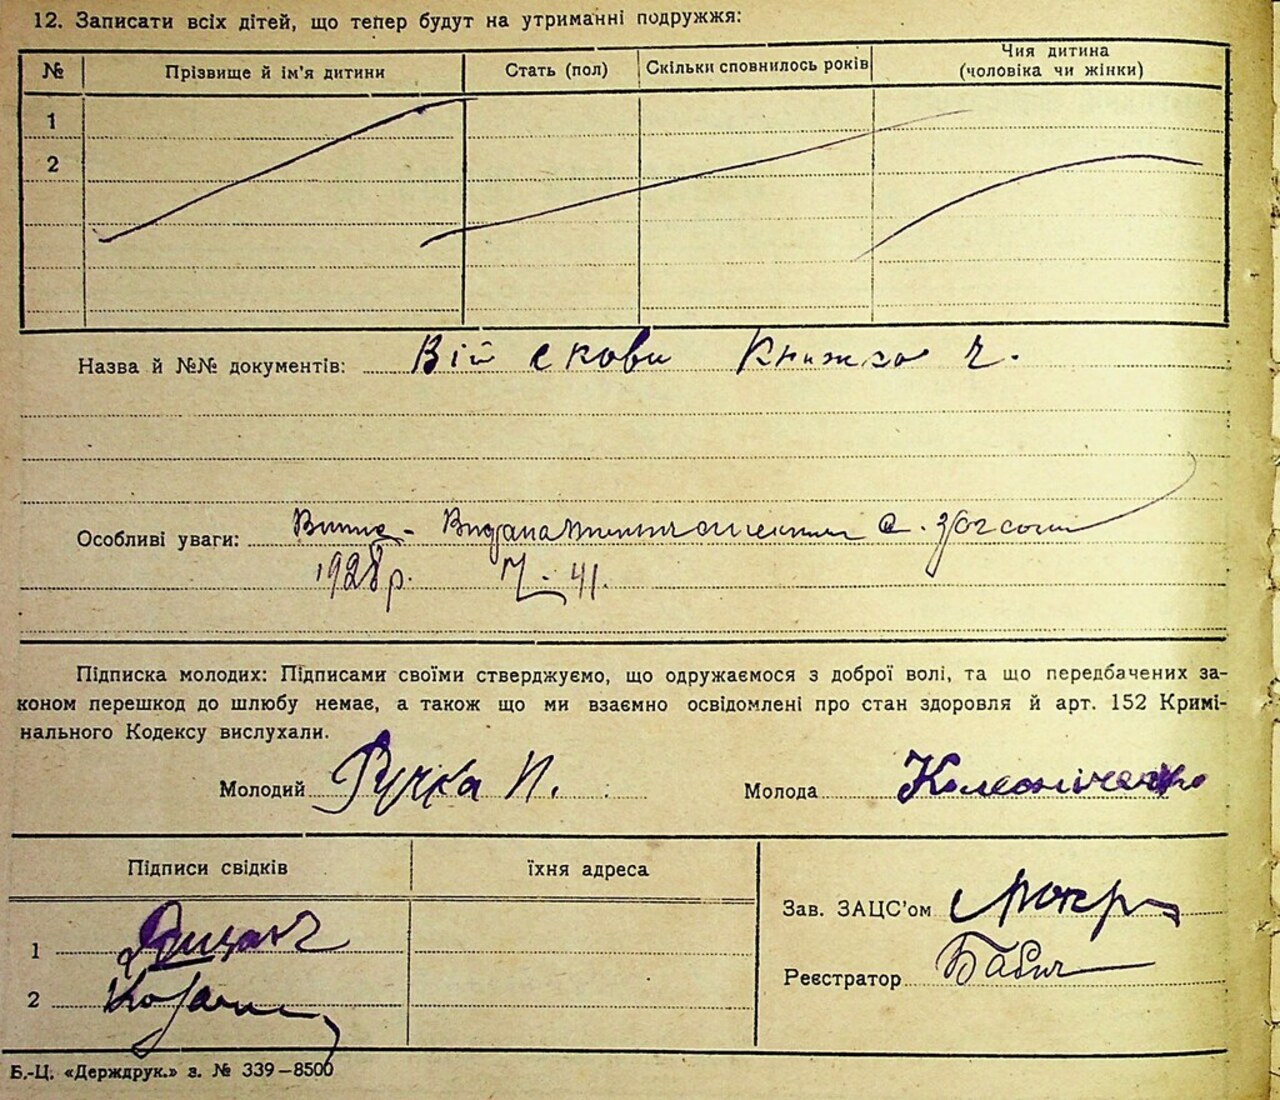 12. Записати всіх дітей, що тепер будут на утриманні подружжя:
№ Прізвище й ім'я дитини Стать (пол) Скільки сповнилось років Чия дитина (чоловіка чи жінки)
1
2
Назва й №№ документів: Військови Книжка ч.
Особливі уваги:
1928 р. 41.
Підписка молодих: Підписами своїми стверджуємо, що одружаємося з доброї волі, та що передбачених за-
коном перешкод до шлюбу немає, а також що ми взаємно освідомлені про стан здоровля й арт. 152 Кримі-
нального Кодексу вислухали.
Молодий Ручка И. Молода
Підписи свідків їхня адреса
Зав. ЗАЦС'ом
1
Реєстратор Бабич
2
Б.-Ц. «Держдрук.» з. № 339—8500